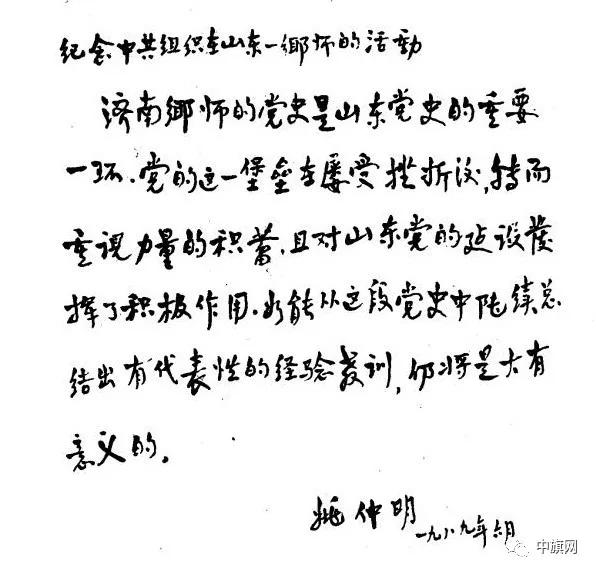 纪念中共组织在山东一鄉师的活動
济南鄉师的党史是山东党史的重要
一环.党的这一堡垒在屡受挫折后,转而
重視力量的积蓄,且对山东党的建設發
挥了积极作用.如能从这段党史中陆续总
结出有代表性的经验教训,仍将是大有
意义的。
姚仲明 一九八九年六月
中旗网